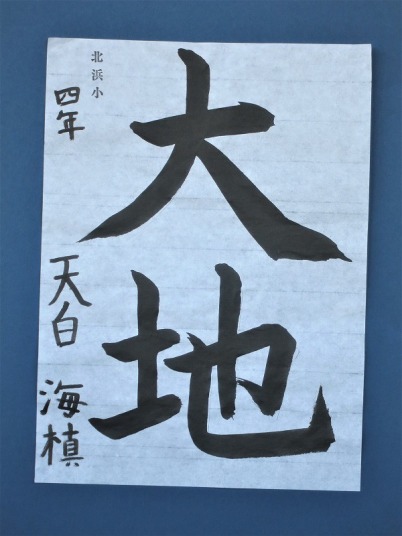 大地
北浜小
四年 天白 海槙